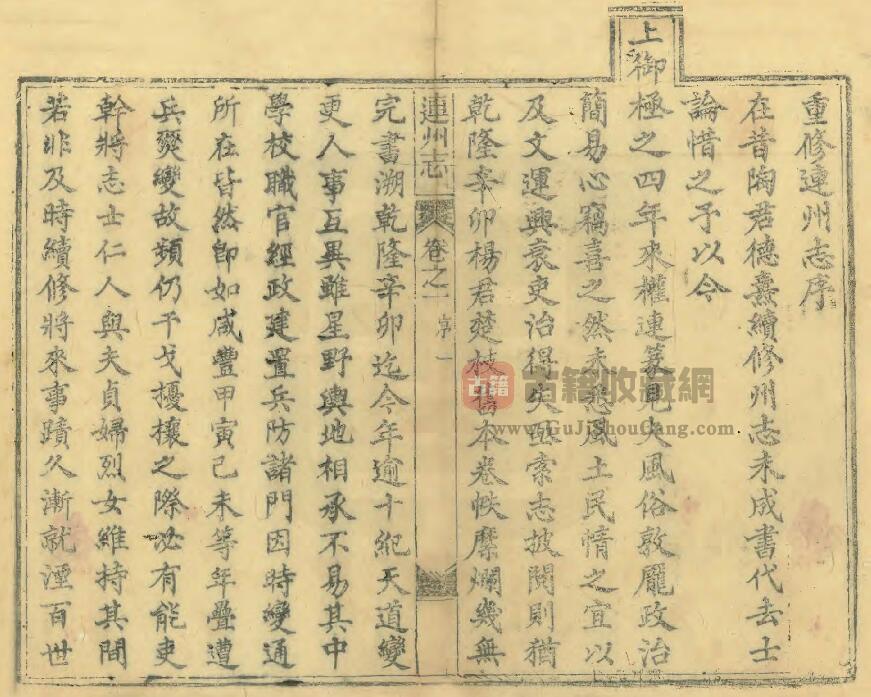 重修連州志序
在昔陶君德燾續修州志未成書代去士
論惜之予以今
上御極之四年來權連篆見夫風俗敦龐政治
簡易心竊喜之然未悉風土民情之宜以
及文運興衰吏治得失亟索志披閱則猶
乾隆辛卯楊君楚枝舊本卷帙糜爛幾無
連州志
卷之一 序 一
完書溯乾隆辛卯迄今年逾十紀天道變
更人事互異雖星野輿地相承不易其中
學校職官經政建置兵防諸門因時變通
所在皆然即如咸豐甲寅己未等年疊遭
兵燹變故頻仍干戈擾攘之際必有能吏
幹將志士仁人與夫貞婦烈女維持其間
若非及時續修將來事蹟久漸就湮百世
古籍
古籍收藏網
www.GuJiShouCang.com